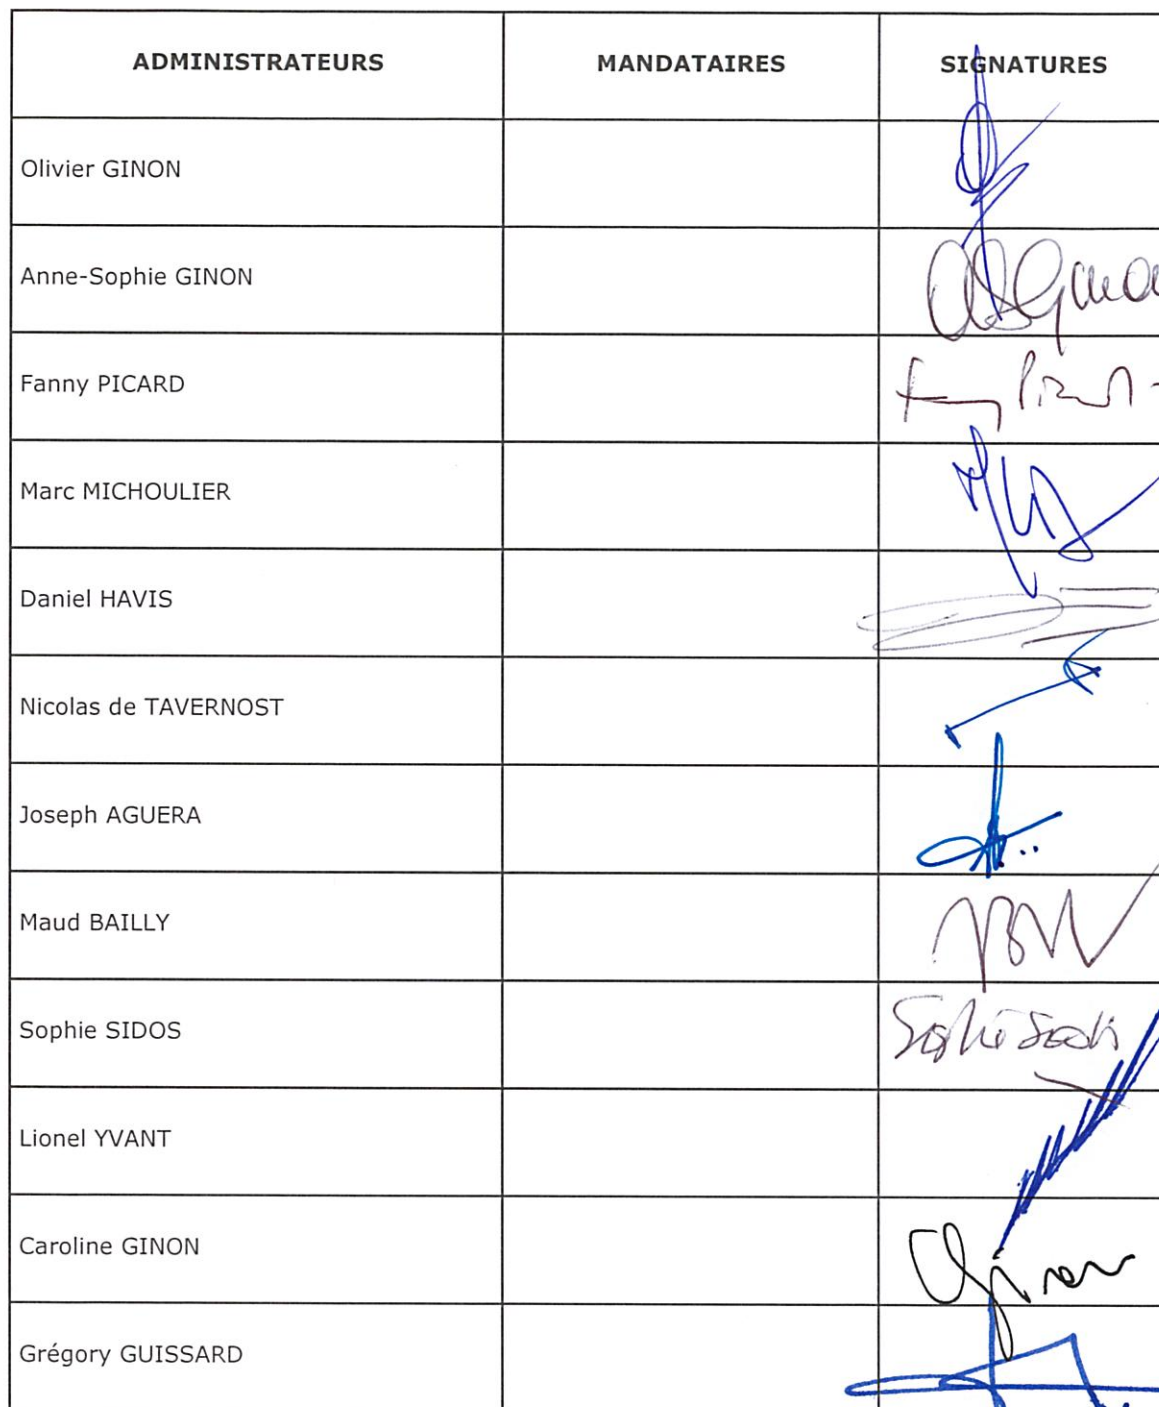 ADMINISTRATEURS MANDATAIRES SIGNATURES
Olivier GINON
Anne-Sophie GINON
Fanny PICARD
Marc MICHOULIER
Daniel HAVIS
Nicolas de TAVERNOST
Joseph AGUERA
Maud BAILLY
Sophie SIDOS
Lionel YVANT
Caroline GINON
Grégory GUISSARD